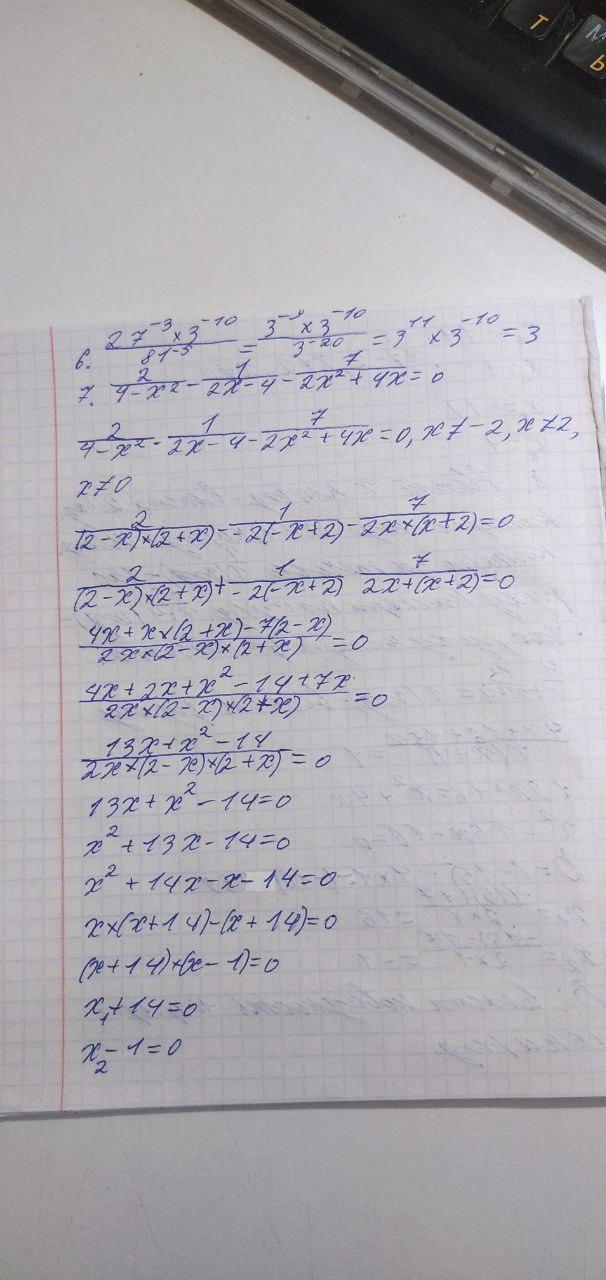 Т
М
Ь
6. 27⁻³×3⁻¹⁰/81⁻⁵ = 3⁻⁹×3⁻¹⁰/3⁻²⁰ = 3¹¹×3⁻¹⁰ = 3
7. 2/4-x² - 1/2x-4 - 7/2x²+4x = 0
2/4-x² - 1/2x-4 - 7/2x²+4x = 0, x≠-2, x≠2,
x≠0
2/(2-x)×(2+x) - 1/-2(-x+2) - 7/2x×(x+2) = 0
2/(2-x)×(2+x) + 1/-2(-x+2) 7/2x+(x+2) = 0
4x+x×(2+x)-7(2-x)/2x×(2-x)×(2+x) = 0
4x+2x+x²-14+7x/2x×(2-x)×(2+x) = 0
13x+x²-14/2x×(2-x)×(2+x) = 0
13x+x²-14=0
x²+13x-14=0
x²+14x-x-14=0
x×(x+14)-(x+14)=0
(x+14)×(x-1)=0
x₁+14=0
x₂-1=0